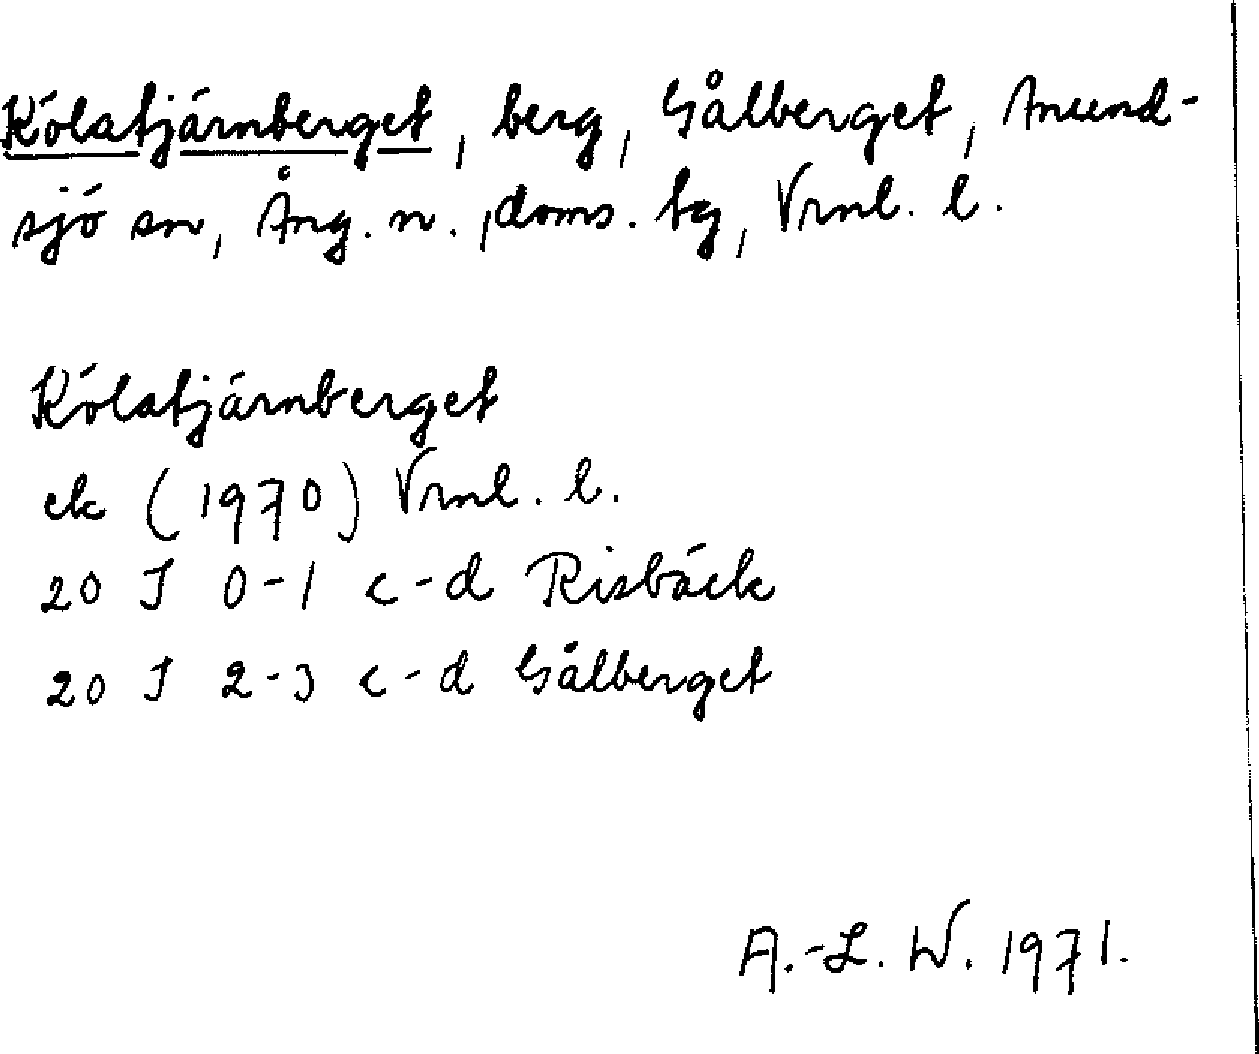 Kölatjärnberget, berg, Gålberget, Anund-
sjö sn, Ång. n., doms. tg, Vrnl. l.
Kölatjärnberget
ek (1970) Vrnl. l.
20 J 0-1 c-d Risbäck
20 J 2-3 c-d Gålberget
A.-L. W. 1971.